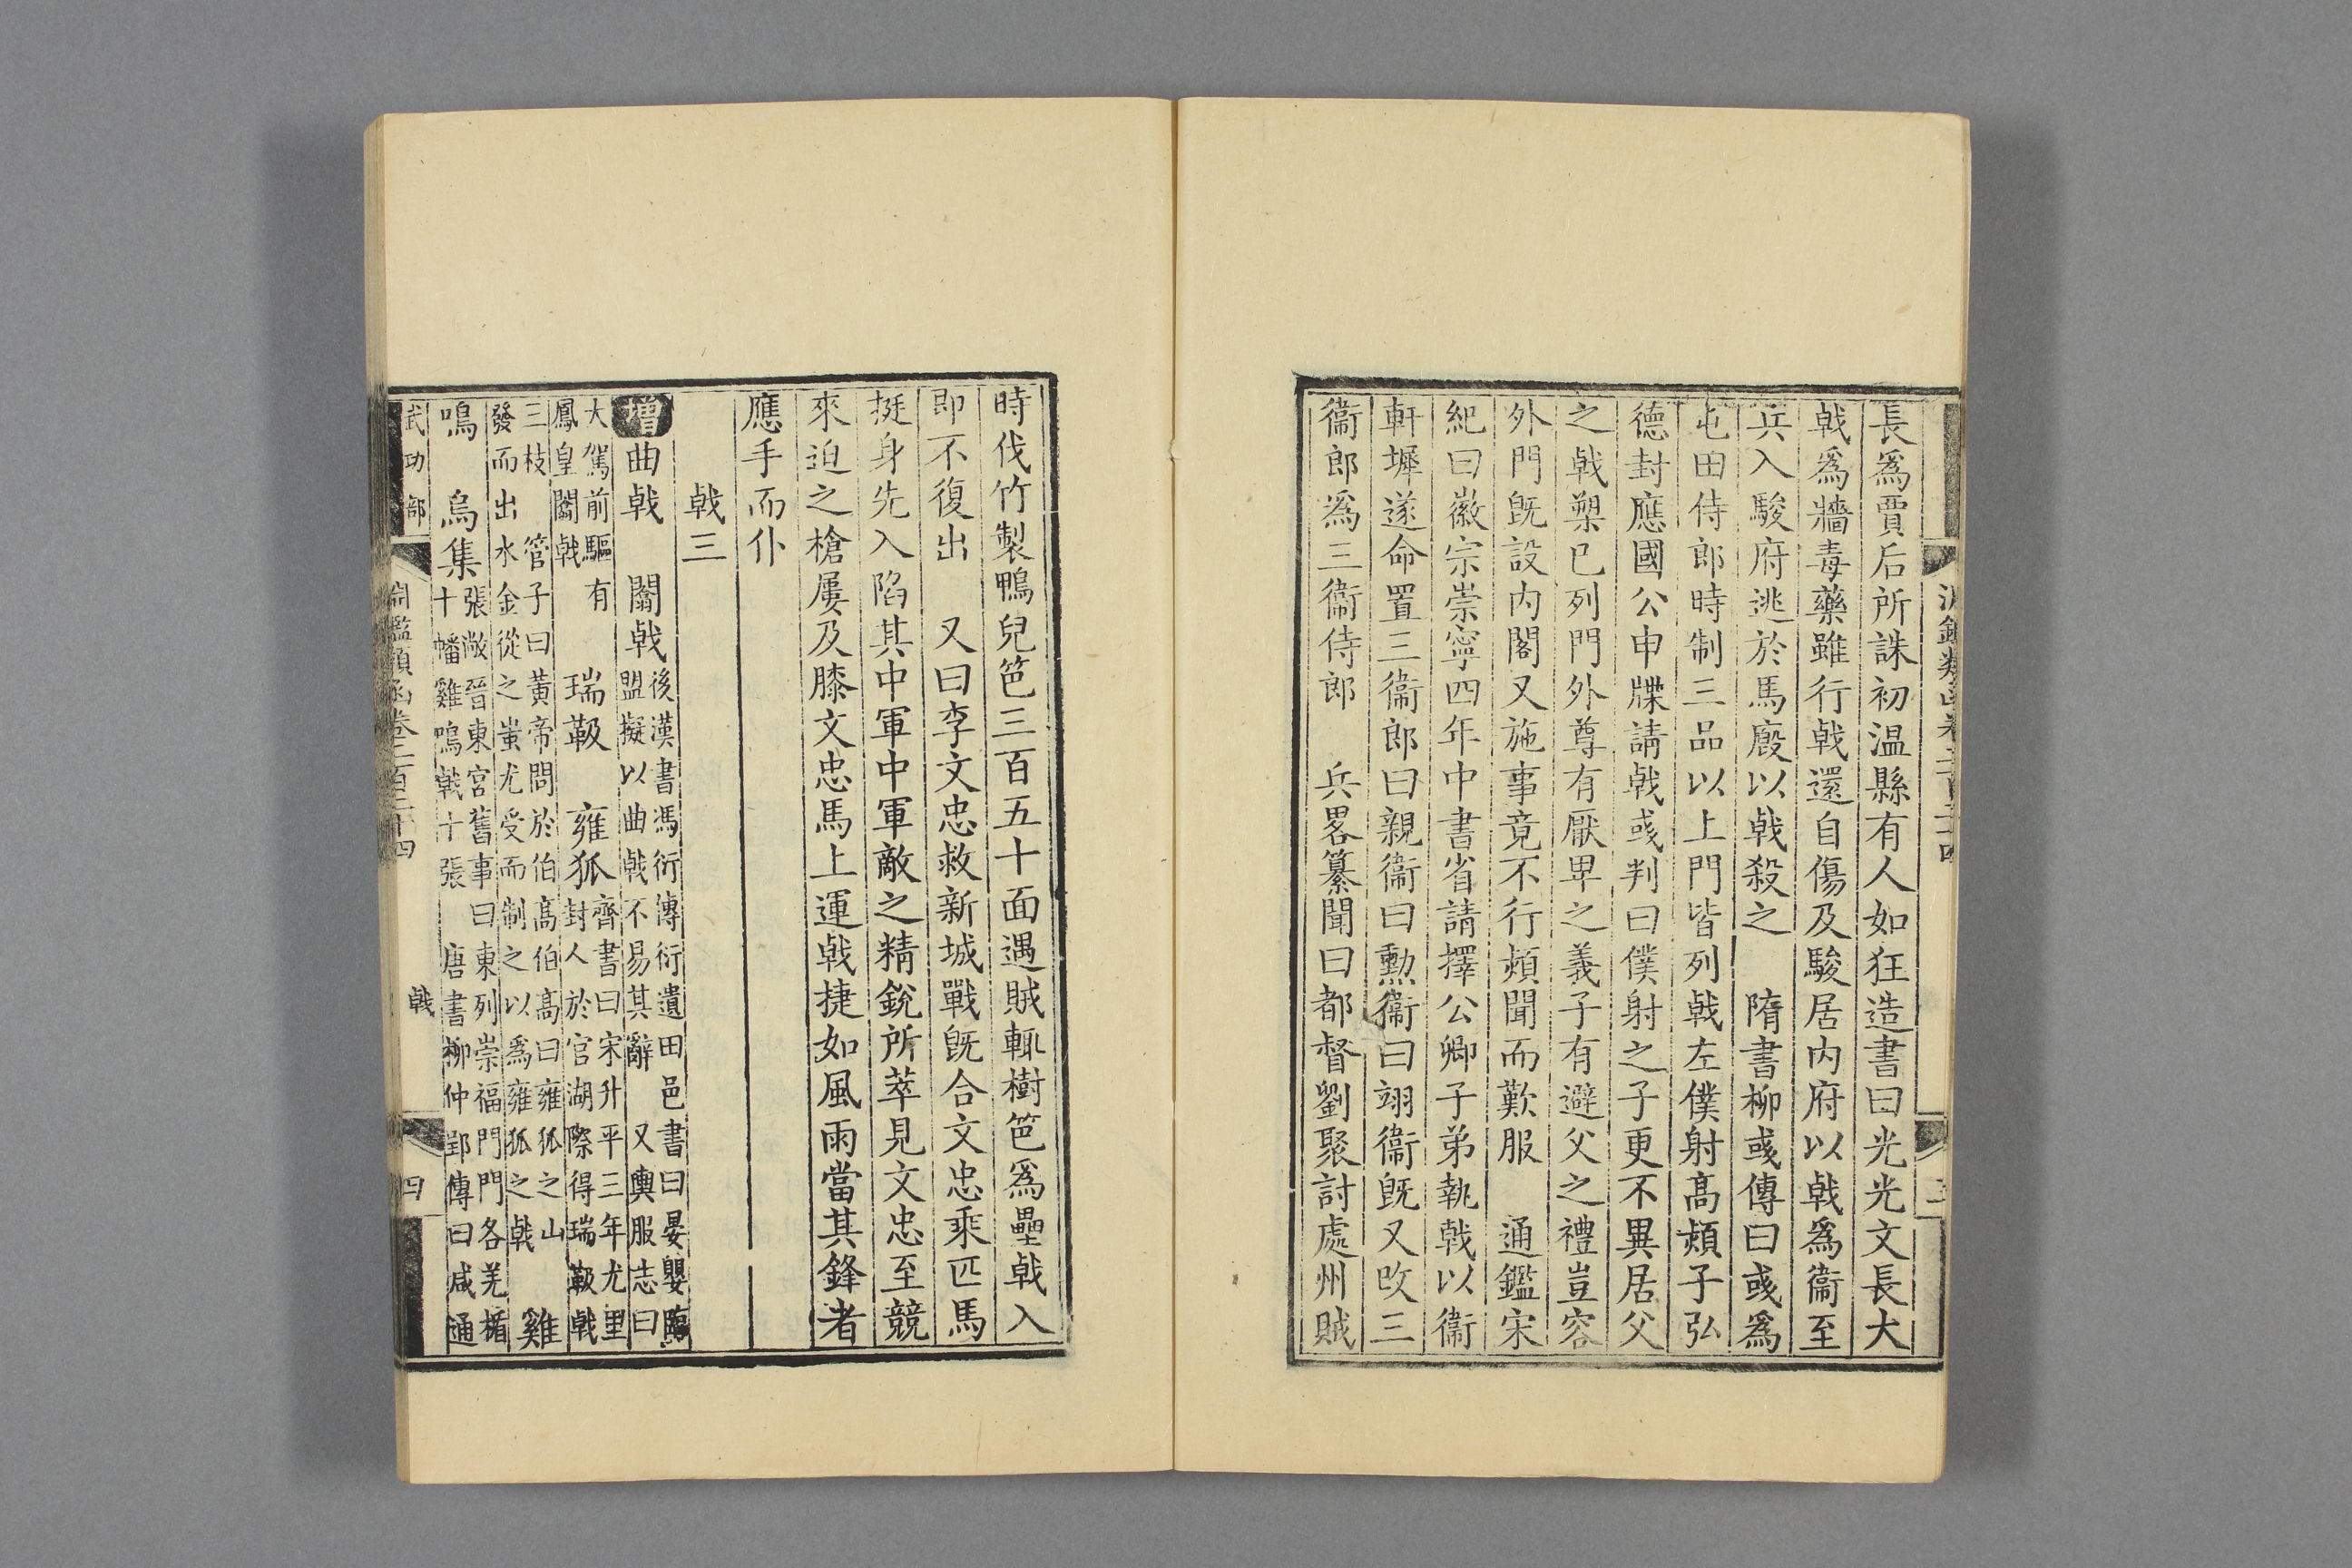 長爲賈后所誅初温縣有人如狂造書曰光光文長大
戟爲牆毒藥雖行戟還自傷及駿居内府以戟爲衞至
兵入駿府逃於馬廏以戟殺之　隋書柳彧傳曰彧爲
屯田侍郎時制三品以上門皆列戟左僕射髙熲子弘
德封應國公申牒請戟彧判曰僕射之子更不異居父
之戟槊已列門外尊有厭卑之義子有避父之禮豈容
外門旣設内閣又施事竟不行熲聞而歎服　通鑑宋
紀曰徽宗崇寧四年中書省請擇公卿子弟執戟以衞
軒墀遂命置三衞郎曰親衞曰勲衞曰翊衞旣又改三
衞郎爲三衞侍郎　兵畧纂聞曰都督劉聚討處州賊
時伐竹製鴨兒笆三百五十面遇賊輒樹笆爲壘戟入
即不復出　又曰李文忠救新城戰旣合文忠乘匹馬
挺身先入陷其中軍中軍敵之精銳所萃見文忠至競
來迫之槍屢及膝文忠馬上運戟捷如風雨當其鋒者
應手而仆
戟三
增曲戟　闟戟
後漢書馮衍傳衍遺田邑書曰晏嬰臨
盟擬以曲戟不易其辭　又輿服志曰
大駕前驅有
鳳皇闟戟
瑞靫　雍狐
齊書曰宋升平三年尤里
封人於宫湖際得瑞靫戟
三枝　管子曰黃帝問於伯髙伯髙曰雍狐之山
發而出水金從之蚩尤受而制之以爲雍狐之戟
雞
鳴　烏集
張敞晉東宮舊事曰東列崇福門門各羌楯
十幡雞鳴戟十張　唐書柳仲郢傳曰咸通
武功部
淵鑑類函卷二百二十四
戟
四